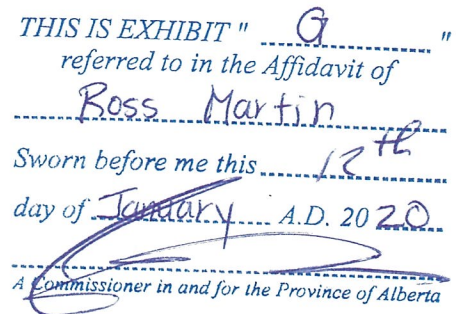 THIS IS EXHIBIT " G "
referred to in the Affidavit of
Ross Martin
Sworn before me this 12th
day of January A.D. 2020
A Commissioner in and for the Province of Alberta